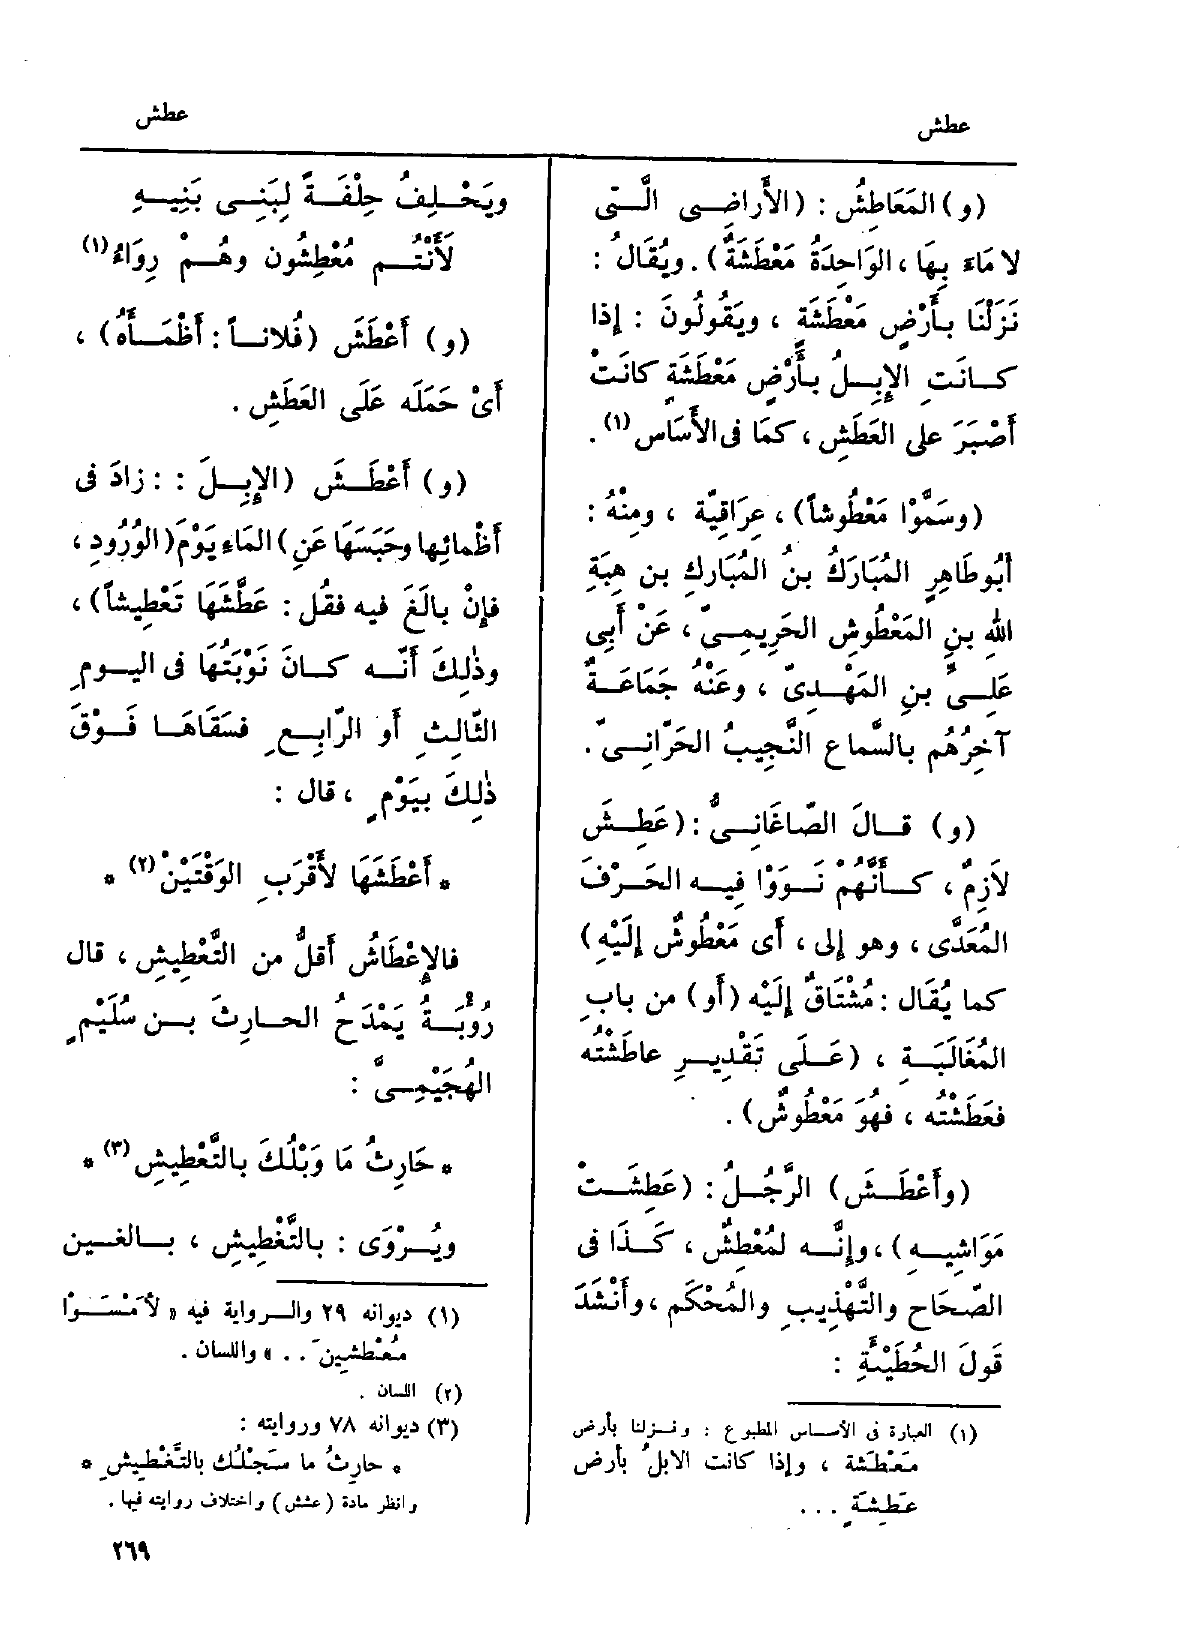 عطش
(و) المَعَاطِشُ : (الأَراضِى الَّتى
لا مَاءَ بِهَا ، الوَاحِدَةُ مَعْطَشَةٌ) . ويُقَالُ :
نَزَلْنَا بأَرْضٍ مَعْطَشَةٍ ، ويَقُولُونَ : إذا
كانَتِ الإِبِلُ بأَرْضٍ مَعْطَشَةٍ كانَتْ
أَصْبَرَ على العَطَشِ ، كمَا فى الأَسَاس (١) .
(وسَمَّوْا مَعْطُوشاً) ، عِرَاقِيّة ، ومِنْهُ :
أبُو طَاهِرٍ المُبَارَكُ بنُ المُبَارِكِ بن هِبَةِ
اللهِ بنِ المَعْطُوشِ الحَرِيمىّ ، عَنْ أَبِى
عَلِىٍّ بنِ المَهْدِىّ ، وعَنْهُ جَمَاعَةٌ
آخِرُهُم بالسَّماع النَّجِيبُ الحَرّانِىّ .
(و) قالَ الصّاغَانِىُّ : (عَطِشَ
لاَزِمٌ ، كأَنَّهُمْ نَوَوْا فِيه الحَرْفَ
المُعَدَّى ، وهو إلى ، أى مَعْطُوشٌ إلَيْهِ)
كما يُقَال : مُشْتَاقٌ إلَيْه (أو) من بابِ
المُغَالَبَةِ ، (عَلَى تَقْدِيرِ عاطَشْتُه
فعَطَشْتُه ، فهُوَ مَعْطُوشٌ) .
(وأَعْطَشَ) الرَّجُلُ : (عَطِشَتْ
مَوَاشِيهِ) ، وإنَّه لمُعْطِشٌ ، كَذَا فى
الصّحَاح والتَّهْذِيبِ والمُحْكَم ، وأَنْشَدَ
قَولَ الحُطَيْئَةِ :
(١) العبارة فى الأساس المطبوع : ونزلنا بأرض
مَعْطَشة ، وإذا كانت الابلُ بأرض
عَطِشَةٍ ...
عطش
ويَحْلِفُ حِلْفَةً لِبَنِى بَنِيهِ
لأَنْتُم مُعْطِشُون وهُمْ رِوَاءُ (١)
(و) أَعْطَشَ (فُلاناً : أَظْمَأَهُ) ،
أىْ حَمَلَه عَلَى العَطَشِ .
(و) أَعْطَشَ (الإِبِلَ : : زادَ فى
أظْمائِها وحَبَسَهَا عَنِ) المَاءِ يَوْمَ (الوُرُودِ ،
فإنْ بالَغَ فيه فقُل : عَطَّشَهَا تَعْطِيشاً) ،
وذٰلِكَ أَنَّه كانَ نَوْبَتُهَا فى اليومِ
الثّالِثِ أَو الرّابِعِ فسَقَاهَا فَوْقَ
ذٰلِكَ بيَوْمٍ ، قال :
* أَعْطَشَهَا لأَقْرَبِ الوَقْتَيْنْ (٢) *
فالإعْطَاشُ أَقلُّ من التَّعْطِيشِ ، قال
رُؤْبَةُ يَمْدَحُ الحارِثَ بن سُلَيْمٍ
الهُجَيْمِىَّ :
* حَارِثُ مَا وَبْلُكَ بالتَّعْطِيشِ (٣) *
ويُرْوَى : بالتَّغْطِيشِ ، بالغين
(١) ديوانه ٢٩ والرواية فيه « لأَمْسَوْا
مُعْطشِينَ .. » واللسان .
(٢) اللسان .
(٣) ديوانه ٧٨ وروايته :
* حارِثُ ما سَجْلُك بالتَّغْطِيشِ *
وانظر مادة (عشش) واختلاف روايته فيها .
٢٦٩